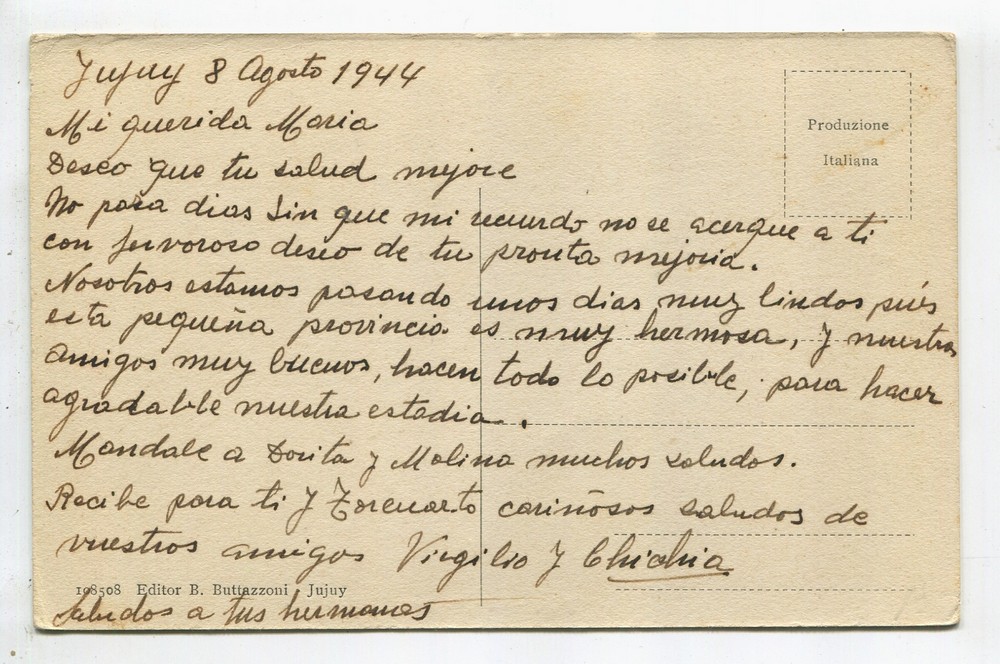 Jujuy 8 Agosto 1944
Mi querida Maria
Deseo que tu salud mejore
No pasa dias sin que mi recuerdo no se acerque a ti
con fervoroso deseo de tu pronta mejoria.
Nosotros estamos pasando unos dias muy lindos pués
esta pequeña provincia es muy hermosa, y nuestros
amigos muy buenos, hacen todo lo posible, para hacer
agradable nuestra estadia.
Mandale a Dorita y Molina muchos saludos.
Recibe para ti y cariñosos saludos de
vuestros amigos Virgilio y Chichia
Saludos a tus hermanas
Produzione
Italiana
108508 Editor B. Buttazzoni - Jujuy